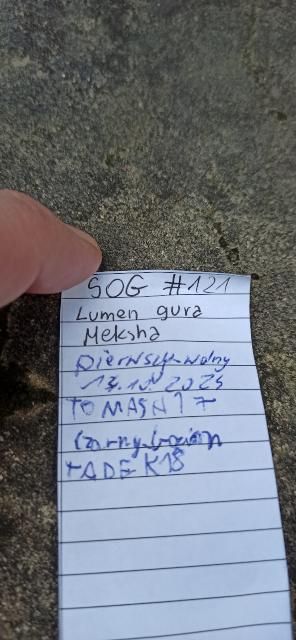 SOG #121
Lumen gura
Meksha
pierwszy wolny
2025
TOMASN17
Czarny.bocian
TADEK18